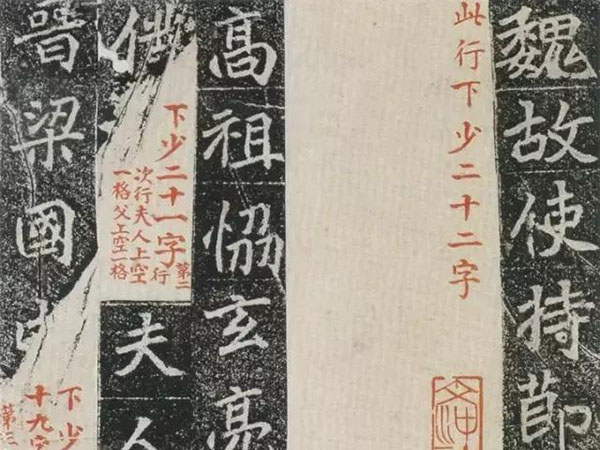 魏故使持節
此行下少二十二字
高祖恊玄亮
下少二十一字
第二行
次行夫人上空
一格父上空一格
夫人
晉梁國
下少
十九字
第三